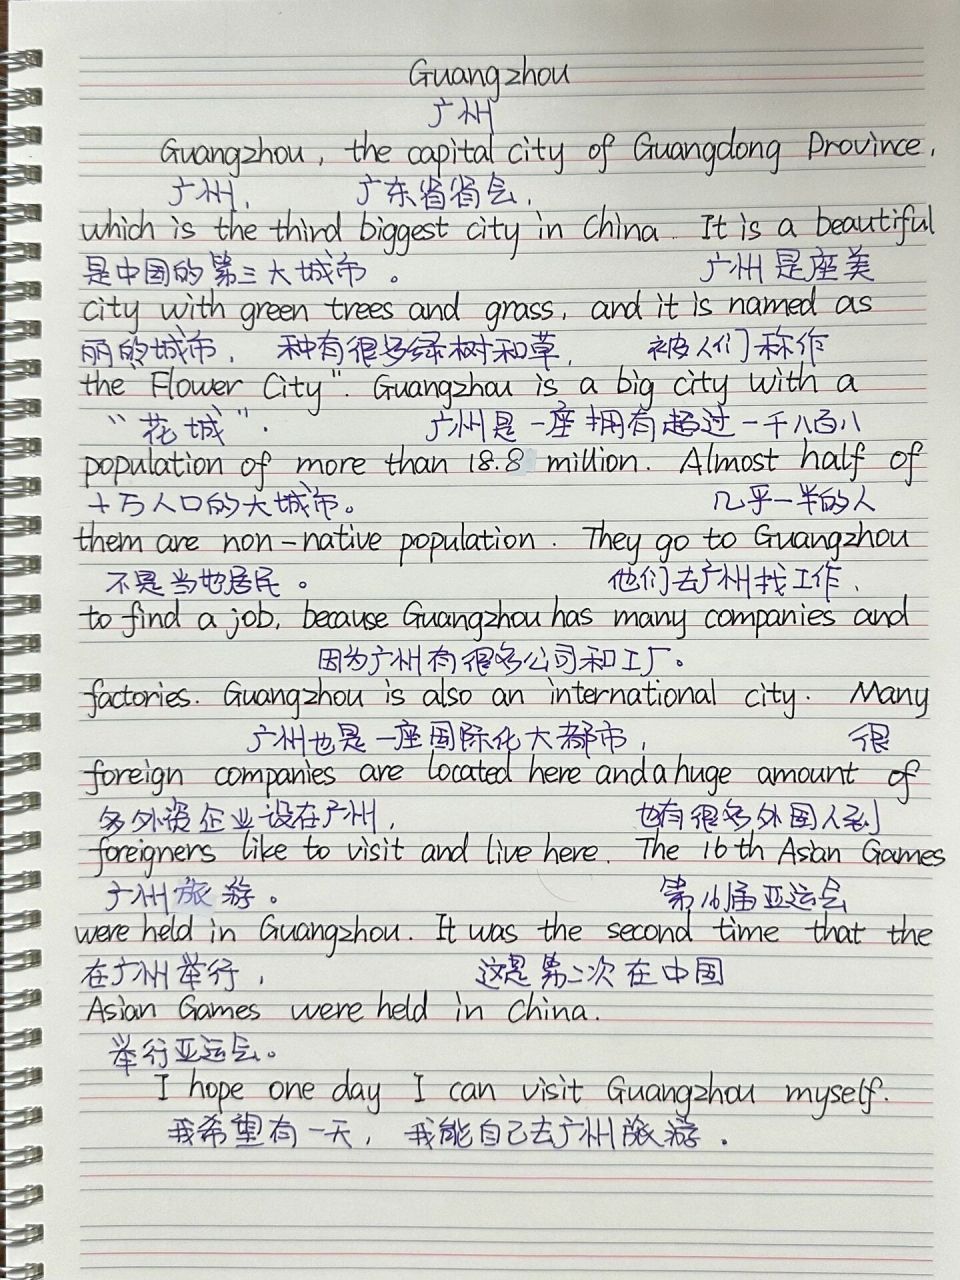 Guangzhou
广州
Guangzhou, the capital city of Guangdong Province,
广州, 广东省省会,
which is the third biggest city in China. It is a beautiful
是中国的第三大城市。 广州是座美
city with green trees and grass, and it is named as
丽的城市, 种有很多绿树和草, 被人们称作
the Flower City". Guangzhou is a big city with a
“花城”. 广州是一座拥有超过一千八百八
population of more than 18.8 million. Almost half of
十万人口的大城市。 几乎一半的人
them are non-native population. They go to Guangzhou
不是当地居民。 他们去广州找工作,
to find a job, because Guangzhou has many companies and
因为广州有很多公司和工厂。
factories. Guangzhou is also an international city. Many
广州也是一座国际化大都市, 很
foreign companies are located here and a huge amount of
多外资企业设在广州, 也有很多外国人到
foreigners like to visit and live here. The 16th Asian Games
广州旅游。 第16届亚运会
were held in Guangzhou. It was the second time that the
在广州举行, 这是第二次在中国
Asian Games were held in China.
举行亚运会。
I hope one day I can visit Guangzhou myself.
我希望有一天, 我能自己去广州旅游.